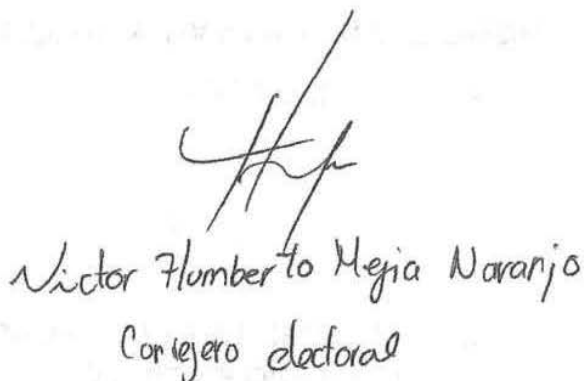 Victor Humberto Mejia Naranjo
Consejero electoral